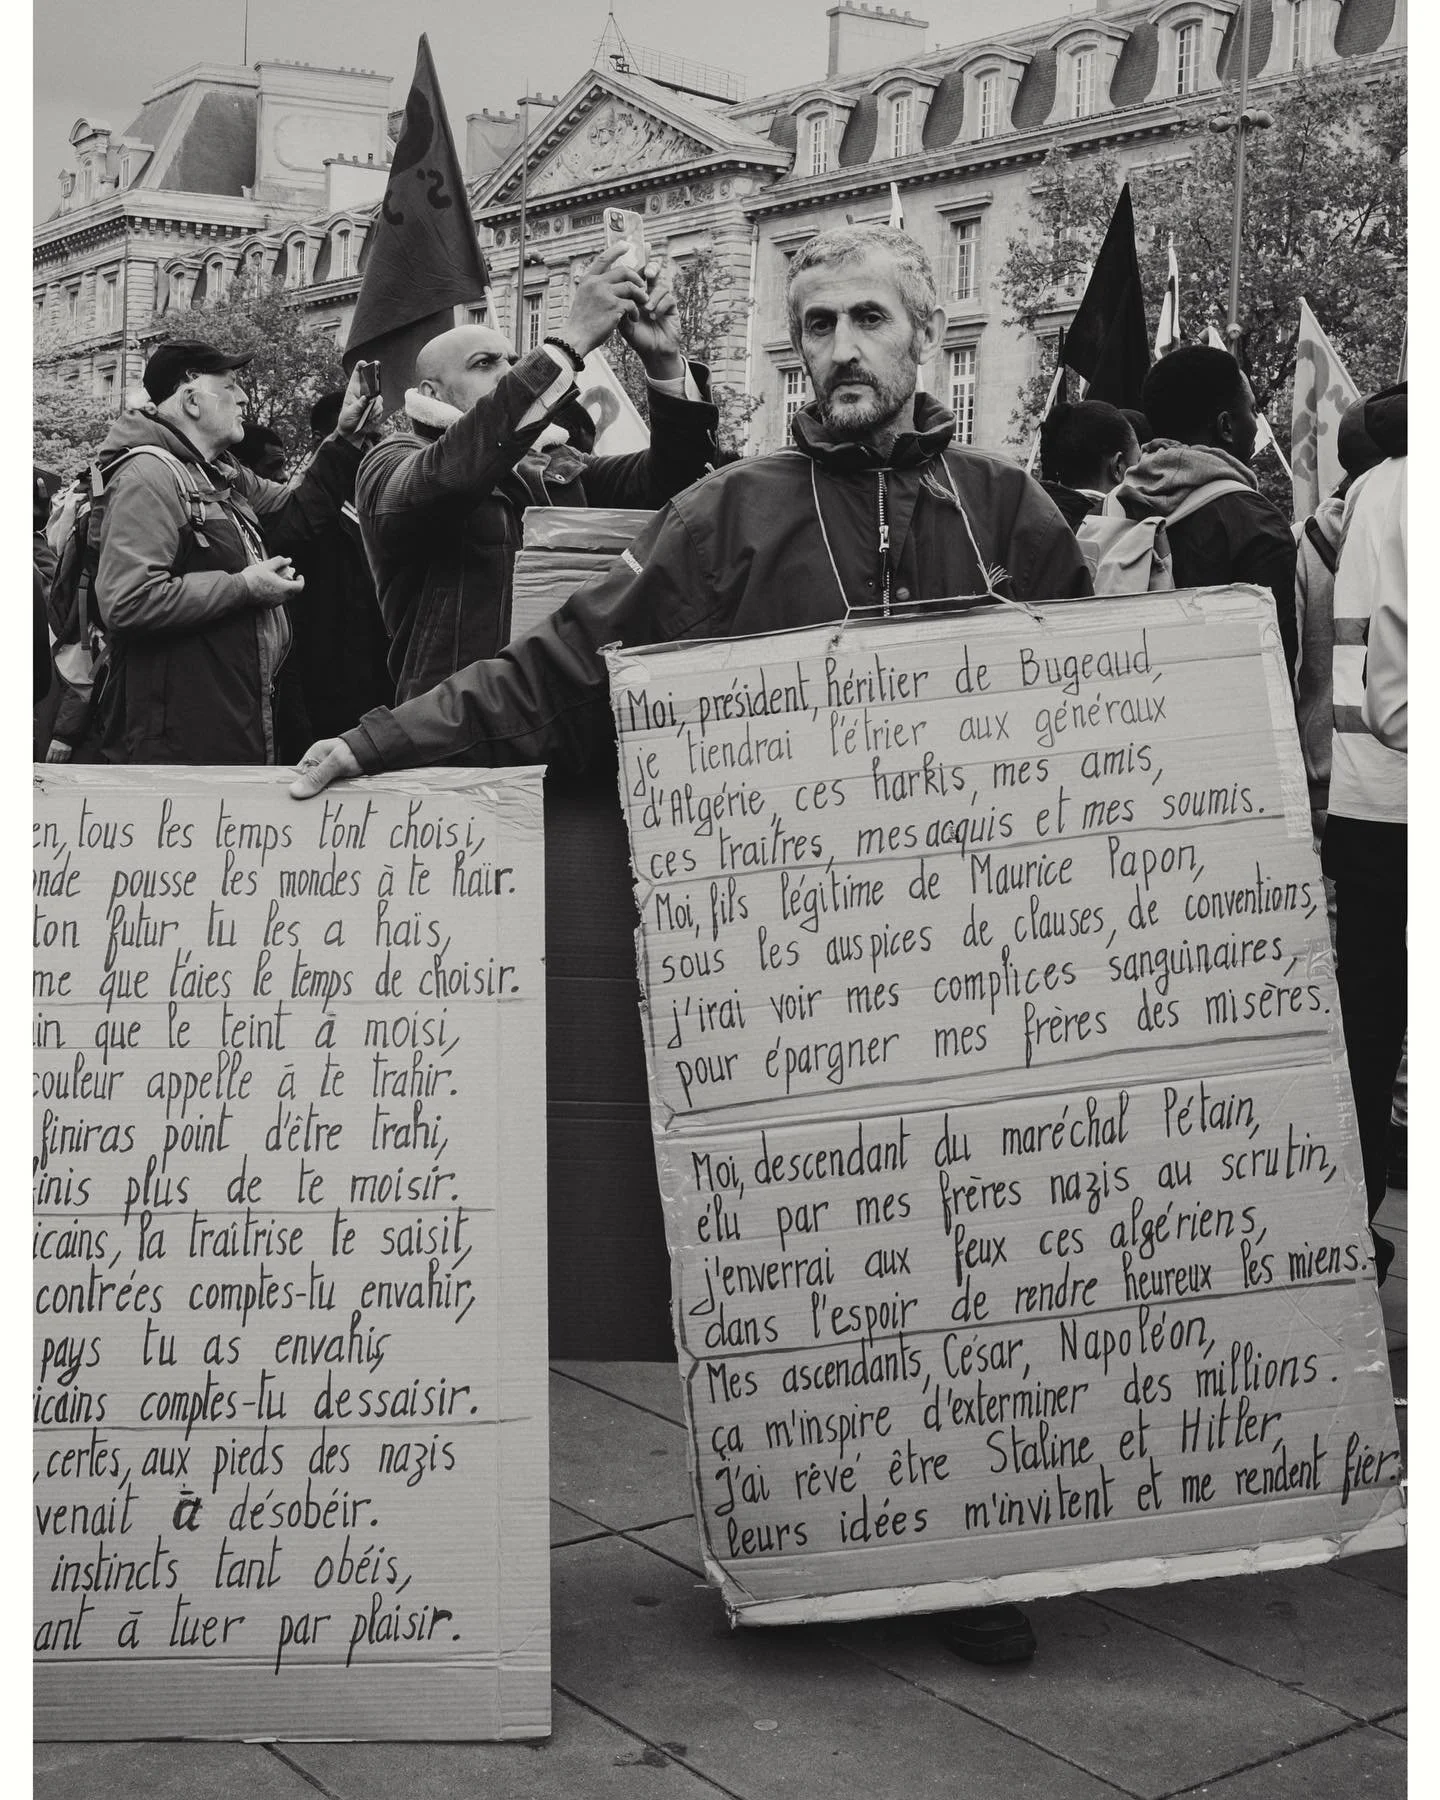 tous les temps t'ont choisi,
pousse les mondes à te haïr.
ton futur, tu les a haïs,
que t'aies le temps de choisir.
que le teint à moisi,
couleur appelle à te trahir.
finiras point d'être trahi,
plus de te moisir.
la traîtrise te saisit,
contrées comptes-tu envahir,
pays tu as envahis,
comptes-tu dessaisir.
certes, aux pieds des nazis
venait à désobéir.
instincts tant obéis,
à tuer par plaisir.
Moi, président, héritier de Bugeaud,
je tiendrai l'étrier aux généraux
d'Algérie, ces harkis, mes amis,
ces traîtres, mes acquis et mes soumis.
Moi, fils légitime de Maurice Papon,
sous les auspices de clauses, de conventions,
j'irai voir mes complices sanguinaires,
pour épargner mes frères des misères.
Moi, descendant du maréchal Pétain,
élu par mes frères nazis au scrutin,
j'enverrai aux feux ces algériens,
dans l'espoir de rendre heureux les miens.
Mes ascendants, César, Napoléon,
ça m'inspire d'exterminer des millions.
J'ai rêvé être Staline et Hitler,
leurs idées m'invitent et me rendent fier.